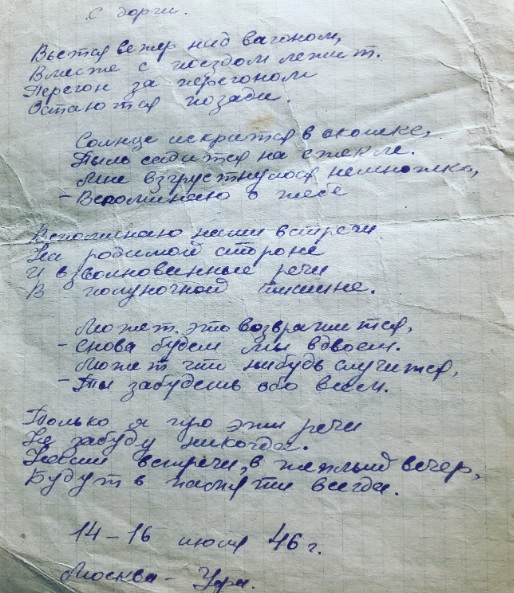 С дороги.
Вьется ветер над вагоном,
Вместе с поездом летит.
Перегон за перегоном
Остаются позади.
Солнце искрится в окошке,
Пыль садится на стекле.
Мне взгрустнулося немножко,
- Вспоминаю о тебе
Вспоминаю наши встречи
На родимой стороне
И взволнованные речи
В полуночной тишине.
Может это возвратится,
- Снова будем мы вдвоем.
Может что нибудь случится,
- Ты забудешь обо всем.
Только я про эти речи
Не забуду никогда.
Наши встречи, в теплый вечер,
Будут в памяти всегда.
14-16 июля 46 г.
Москва - Уфа.